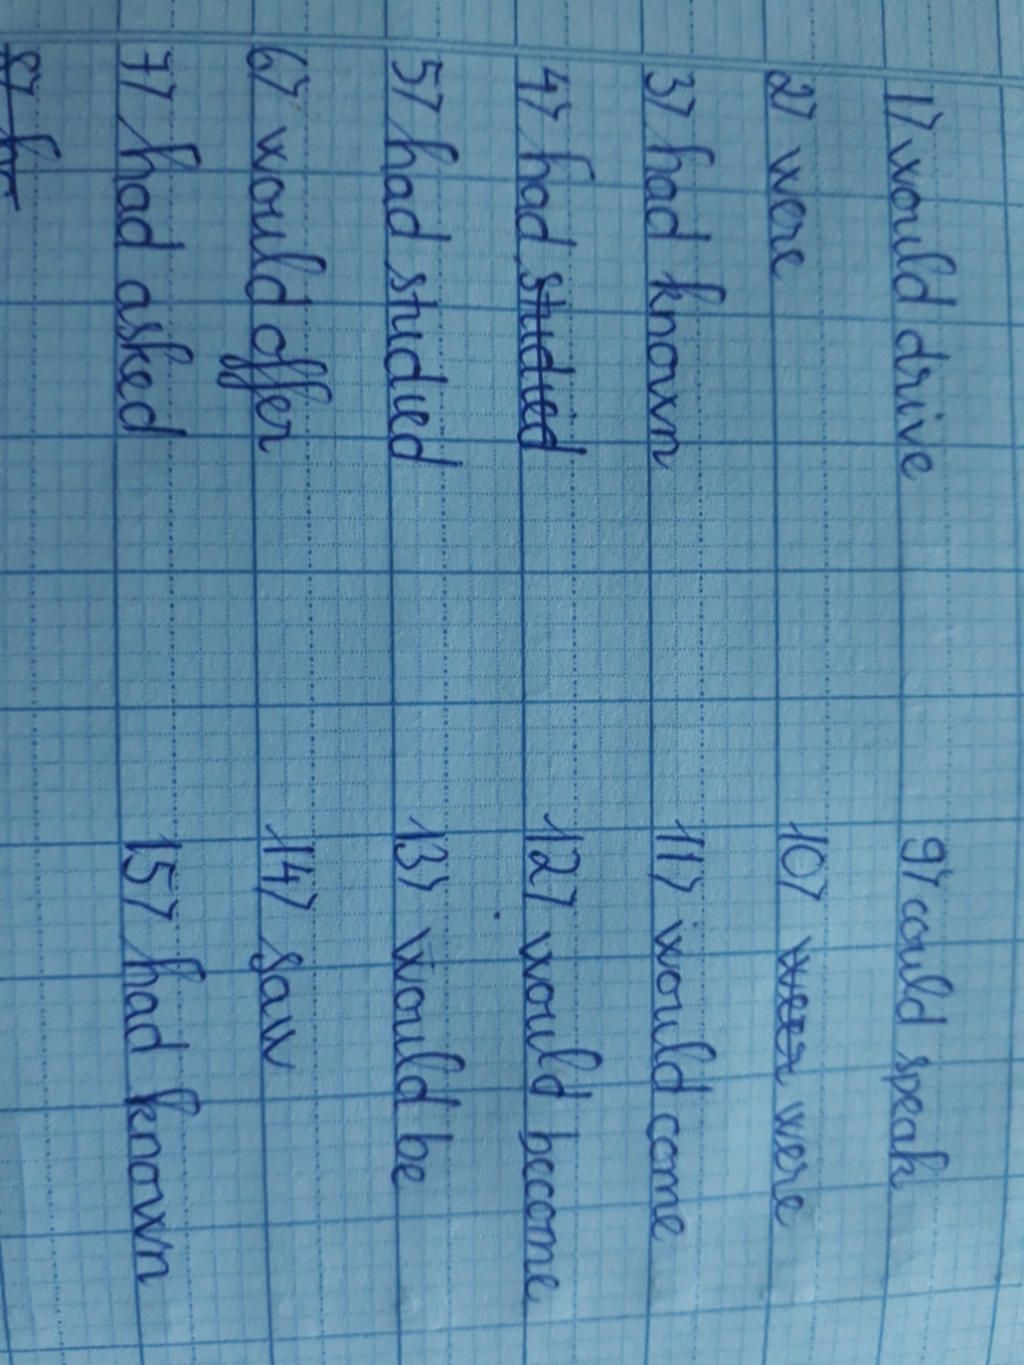 1) would drive
2) were
3) had known
4) had studied
5) had studied
6) would offer
7) had asked
8) ha
9) could speak
10) were were
11) would come
12) would become
13) would be
14) saw
15) had known